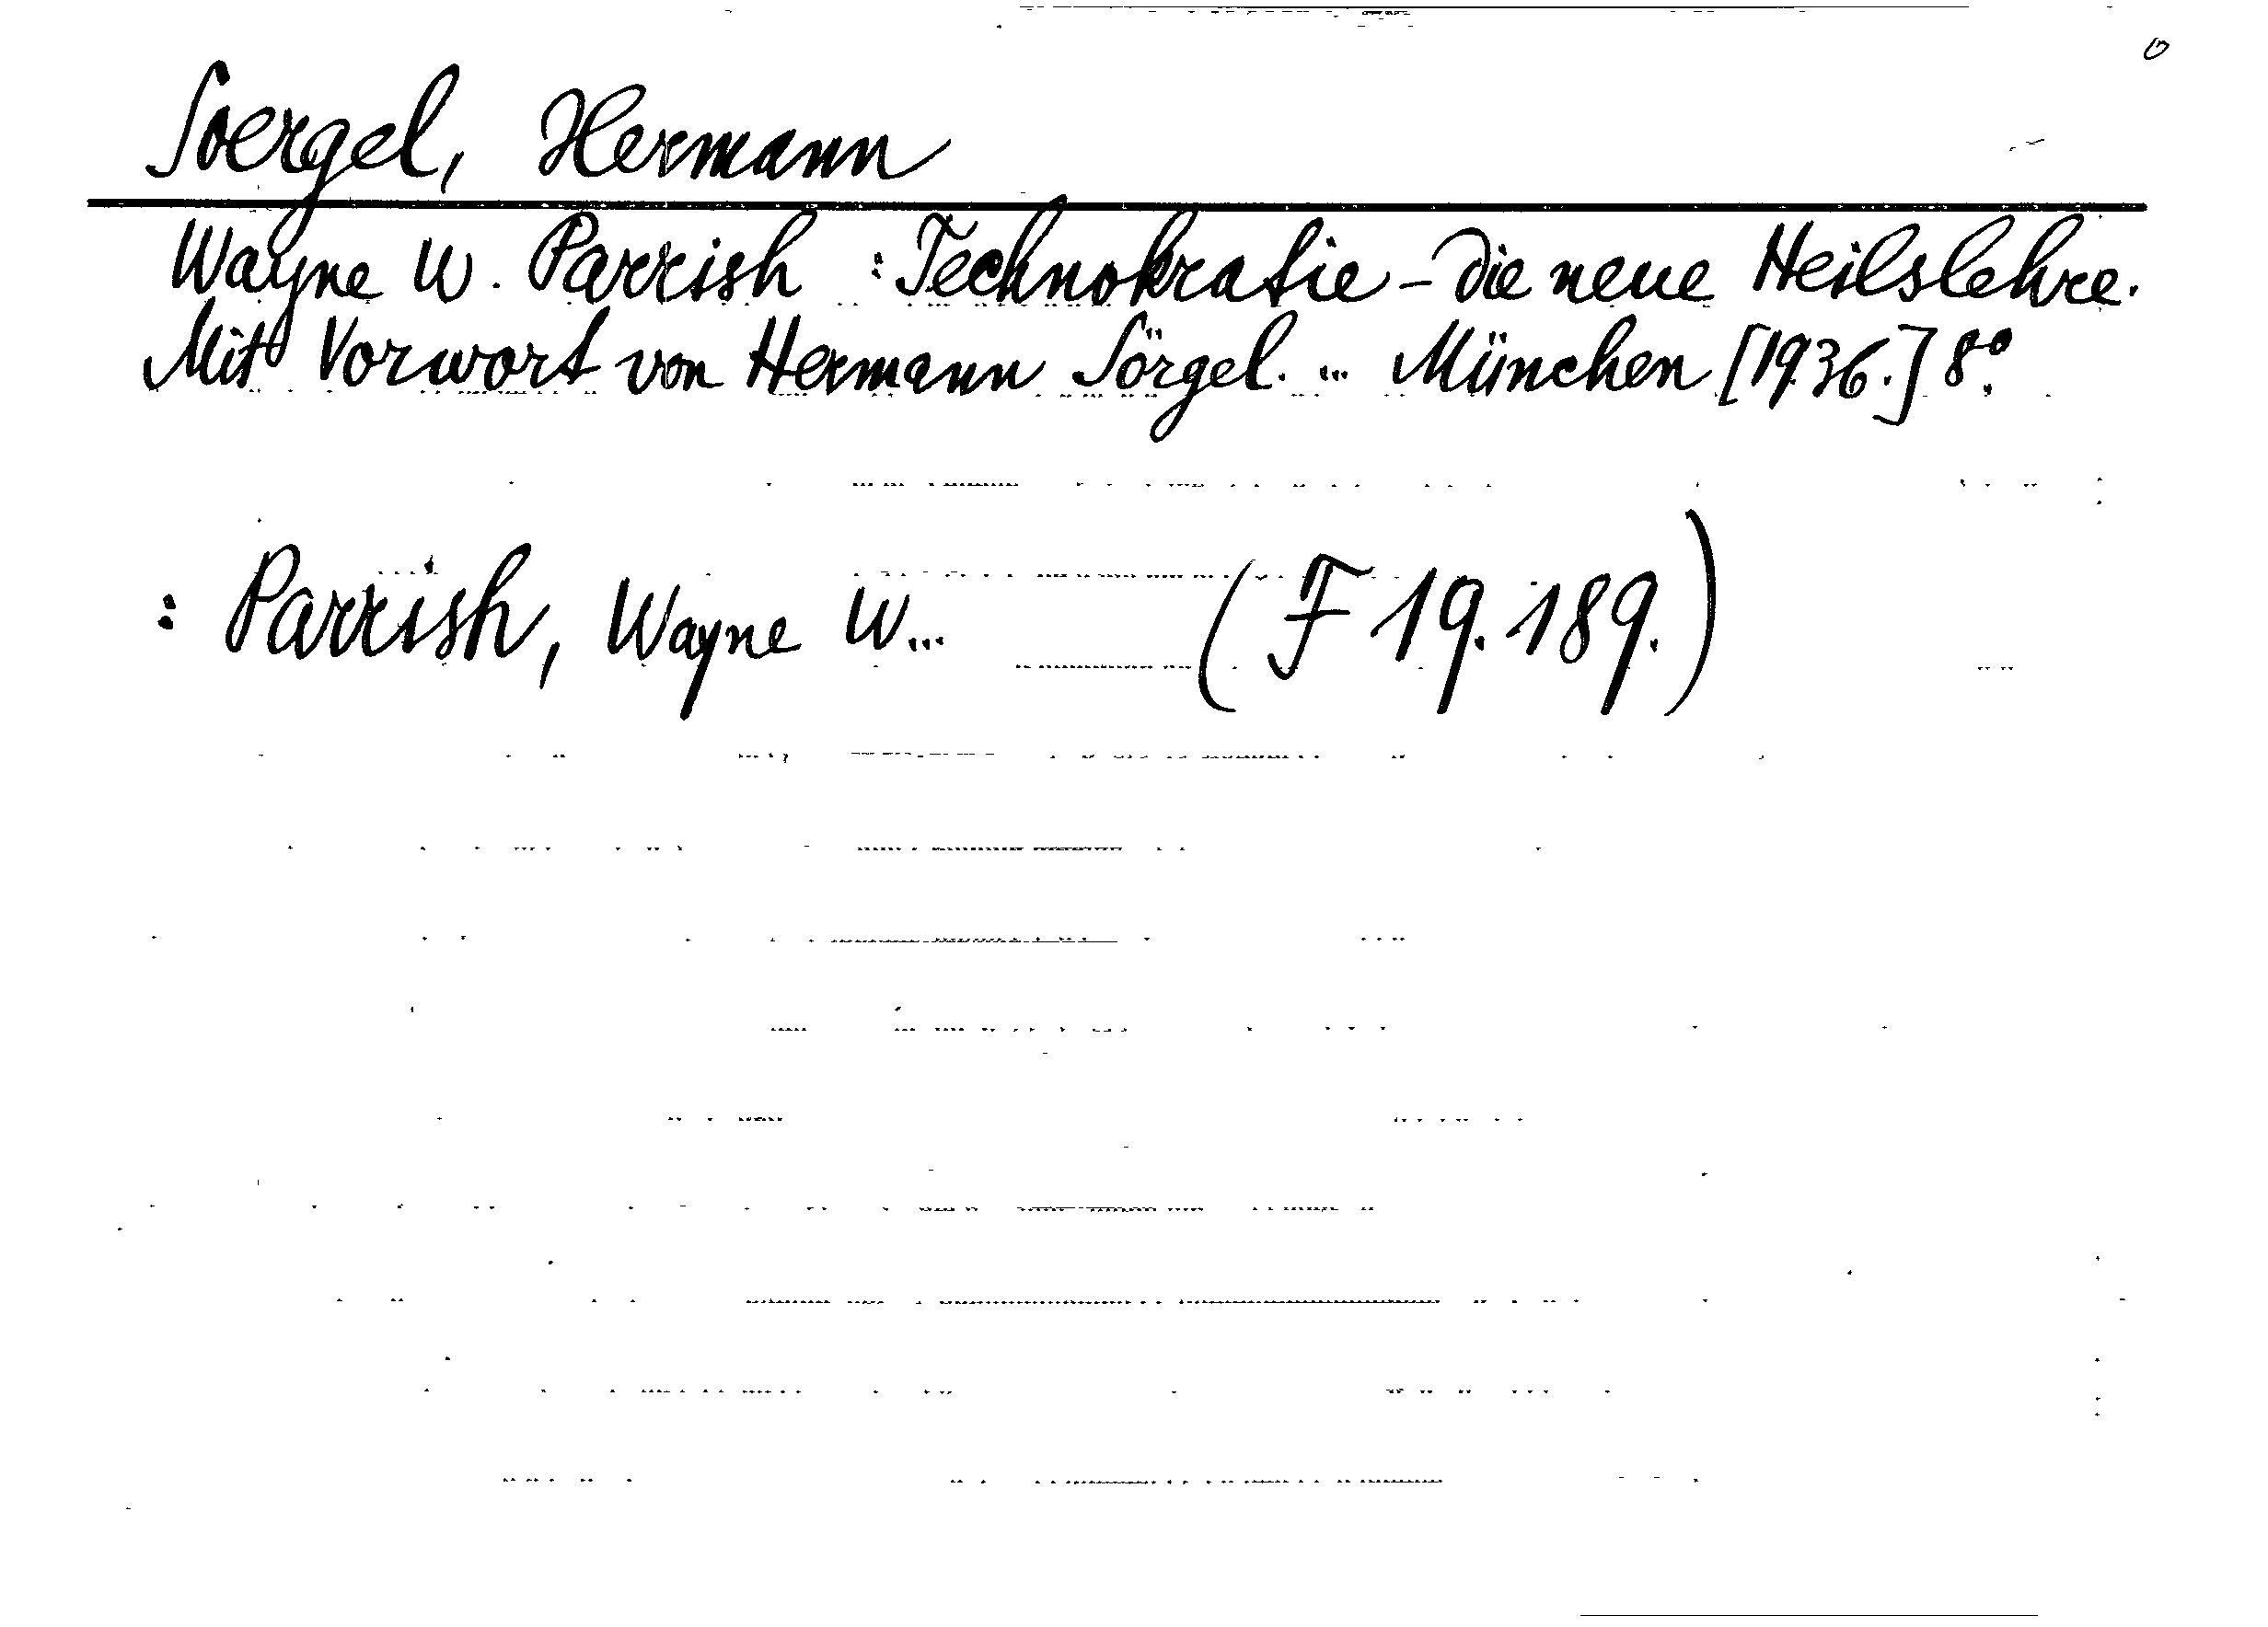 Soergel, Hermann
Wayne W. Parrish : Technokratie - die neue Heilslehre.
Mit Vorwort von Hermann Sörgel. ... München [1936.] 8°.
: Parrish, Wayne W... (F 19.189.)